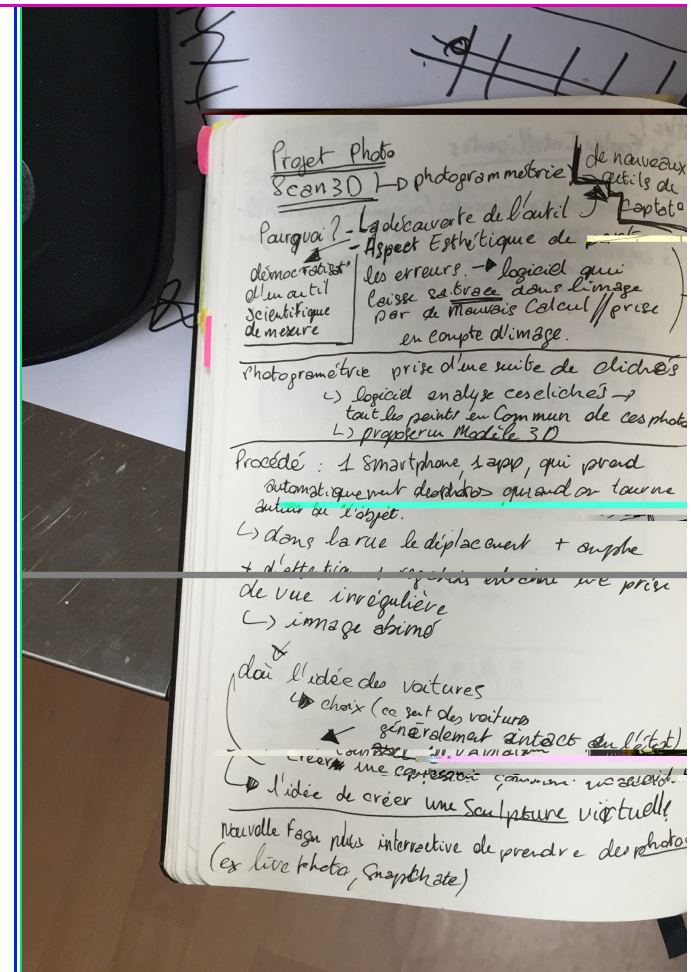 Projet Photo
Scan 3D photogrammétrie
de nouveaux
outils de
Captat°
Pourquoi? - La découverte de l'outil
- Aspect Esthétique de
démocratisat°
d'un outil
scientifique
de mesure
les erreurs. logiciel qui
laisse sa trace dans l'image
par de Mauvais Calcul // prise
en compte d'image.
Photogramétrie prise d'une suite de clichés
logiciel analyse ces clichés
tout les points en Commun de ces photo
proposer un Modèle 3D
Procédé : 1 smartphone, 1 app, qui prend
automatiquement des photos quand on tourne
autour de l'objet.
dans la rue le déplacement + ample
prise
de vue irrégulière
image abimé
d'où l'idée des voitures
choix (ce sont des voitures
généralement intact en l'état)
Créer une
l'idée de créer une Sculpture virtuelle
Nouvelle façon plus interractive de prendre des photo
(ex live photo, Snapchate)